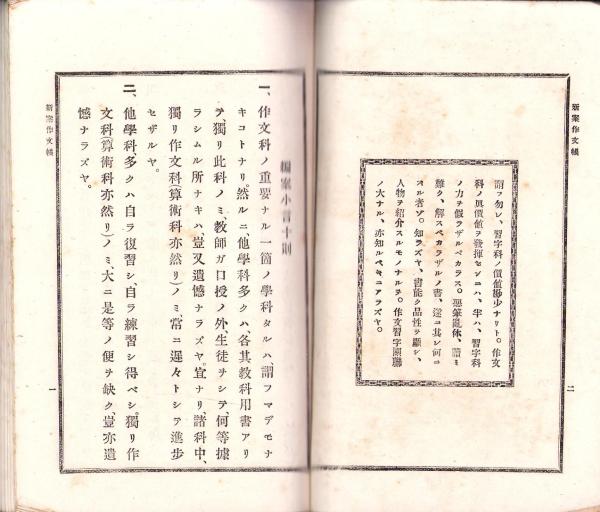 新案作文帳
謂フ勿レ、習字科ノ價値尠少ナリト。作文
科ノ眞價値ヲ發揮センニハ、半ハ、習字科
ノ力ヲ假ラザルベカラス。惡筆亂体、讀ミ
難ク、解スベカラザルノ書、遂ニ其レ何ニ
オル者ゾ。知ラズヤ、書能ク品性ヲ顯シ、
人物ヲ紹介スルモノナルヲ。作文習字關聯
ノ大ナル、亦知ルベキニアラズヤ。
二
編案小言十則
一、作文科ノ重要ナル一箇ノ學科タルハ、謂フマデモナ
キコトナリ。然ルニ、他學科多クハ、各其教科用書アリ
テ、獨リ此科ノミ、教師ガ口授ノ外、生徒ヲシテ、何等據
ラシムル所ナキハ、豈又遺憾ナラズヤ。宜ナリ、諸科中、
獨リ作文科(算術科亦然リ)ノミ、常ニ遲々トシテ進步
セザルヤ。
二、他學科多クハ自ラ復習シ、自ラ練習シ得ベシ。獨リ作
文科(算術科亦然リ)ノミ、大ニ是等ノ便ヲ缺ク、豈亦遺
憾ナラズヤ。
新案作文帳
一